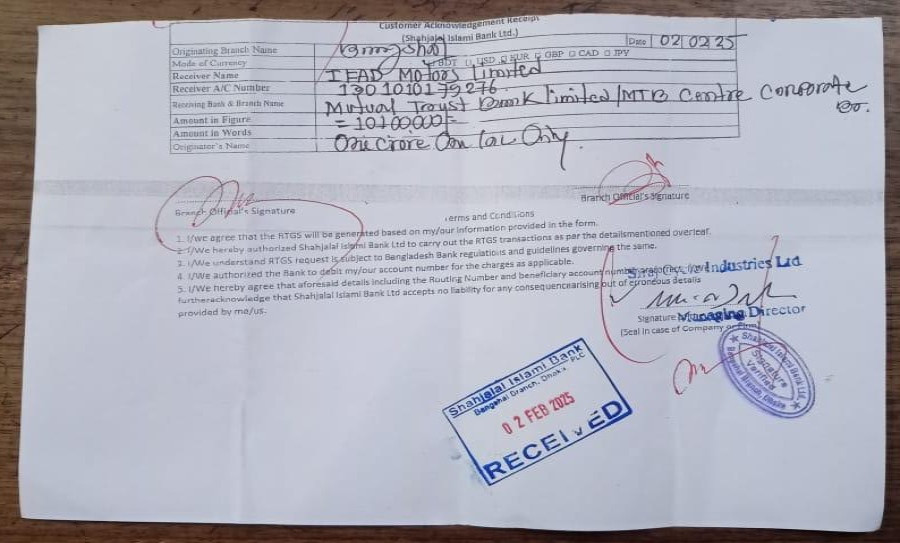 Customer Acknowledgement Receipt
(Shahjalal Islami Bank Ltd.)
Date 02/02/25
Originating Branch Name Bangshal
Mode of Currency BDT USD EUR GBP CAD JPY
Receiver Name IFAD Motors Limited
Receiver A/C Number 1301010179276
Receiving Bank & Branch Name Mutual Trust Bank limited/MTB Centre Corporate Br.
Amount in Figure = 10100000/=
Amount in Words One Crore One lac Only.
Originator's Name
Branch Official's Signature
Branch Official's Signature
Terms and Conditions
1. I/we agree that the RTGS will be generated based on my/our information provided in the form.
2. I/We hereby authorized Shahjalal Islami Bank Ltd to carry out the RTGS transactions as per the detailsmentioned overleaf.
3. I/We understand RTGS request is subject to Bangladesh Bank regulations and guidelines governing the same.
4. I/We authorized the Bank to debit my/our account number for the charges as applicable.
5. I/We hereby agree that aforesaid details including the Routing Number and beneficiary account number
furtheracknowledge that Shahjalal Islami Bank Ltd accepts no liability for any consequencearising out of erroneous details
provided by me/us.
Industries Ltd
Signature
Managing Director
(Seal in case of Company or Firm)
Shahjalal Islami Bank Ltd.
Signature
Verified
Bangshal Branch, Dhaka
Shahjalal Islami Bank PLC
Bangshal Branch, Dhaka.
02 FEB 2025
RECEIVED